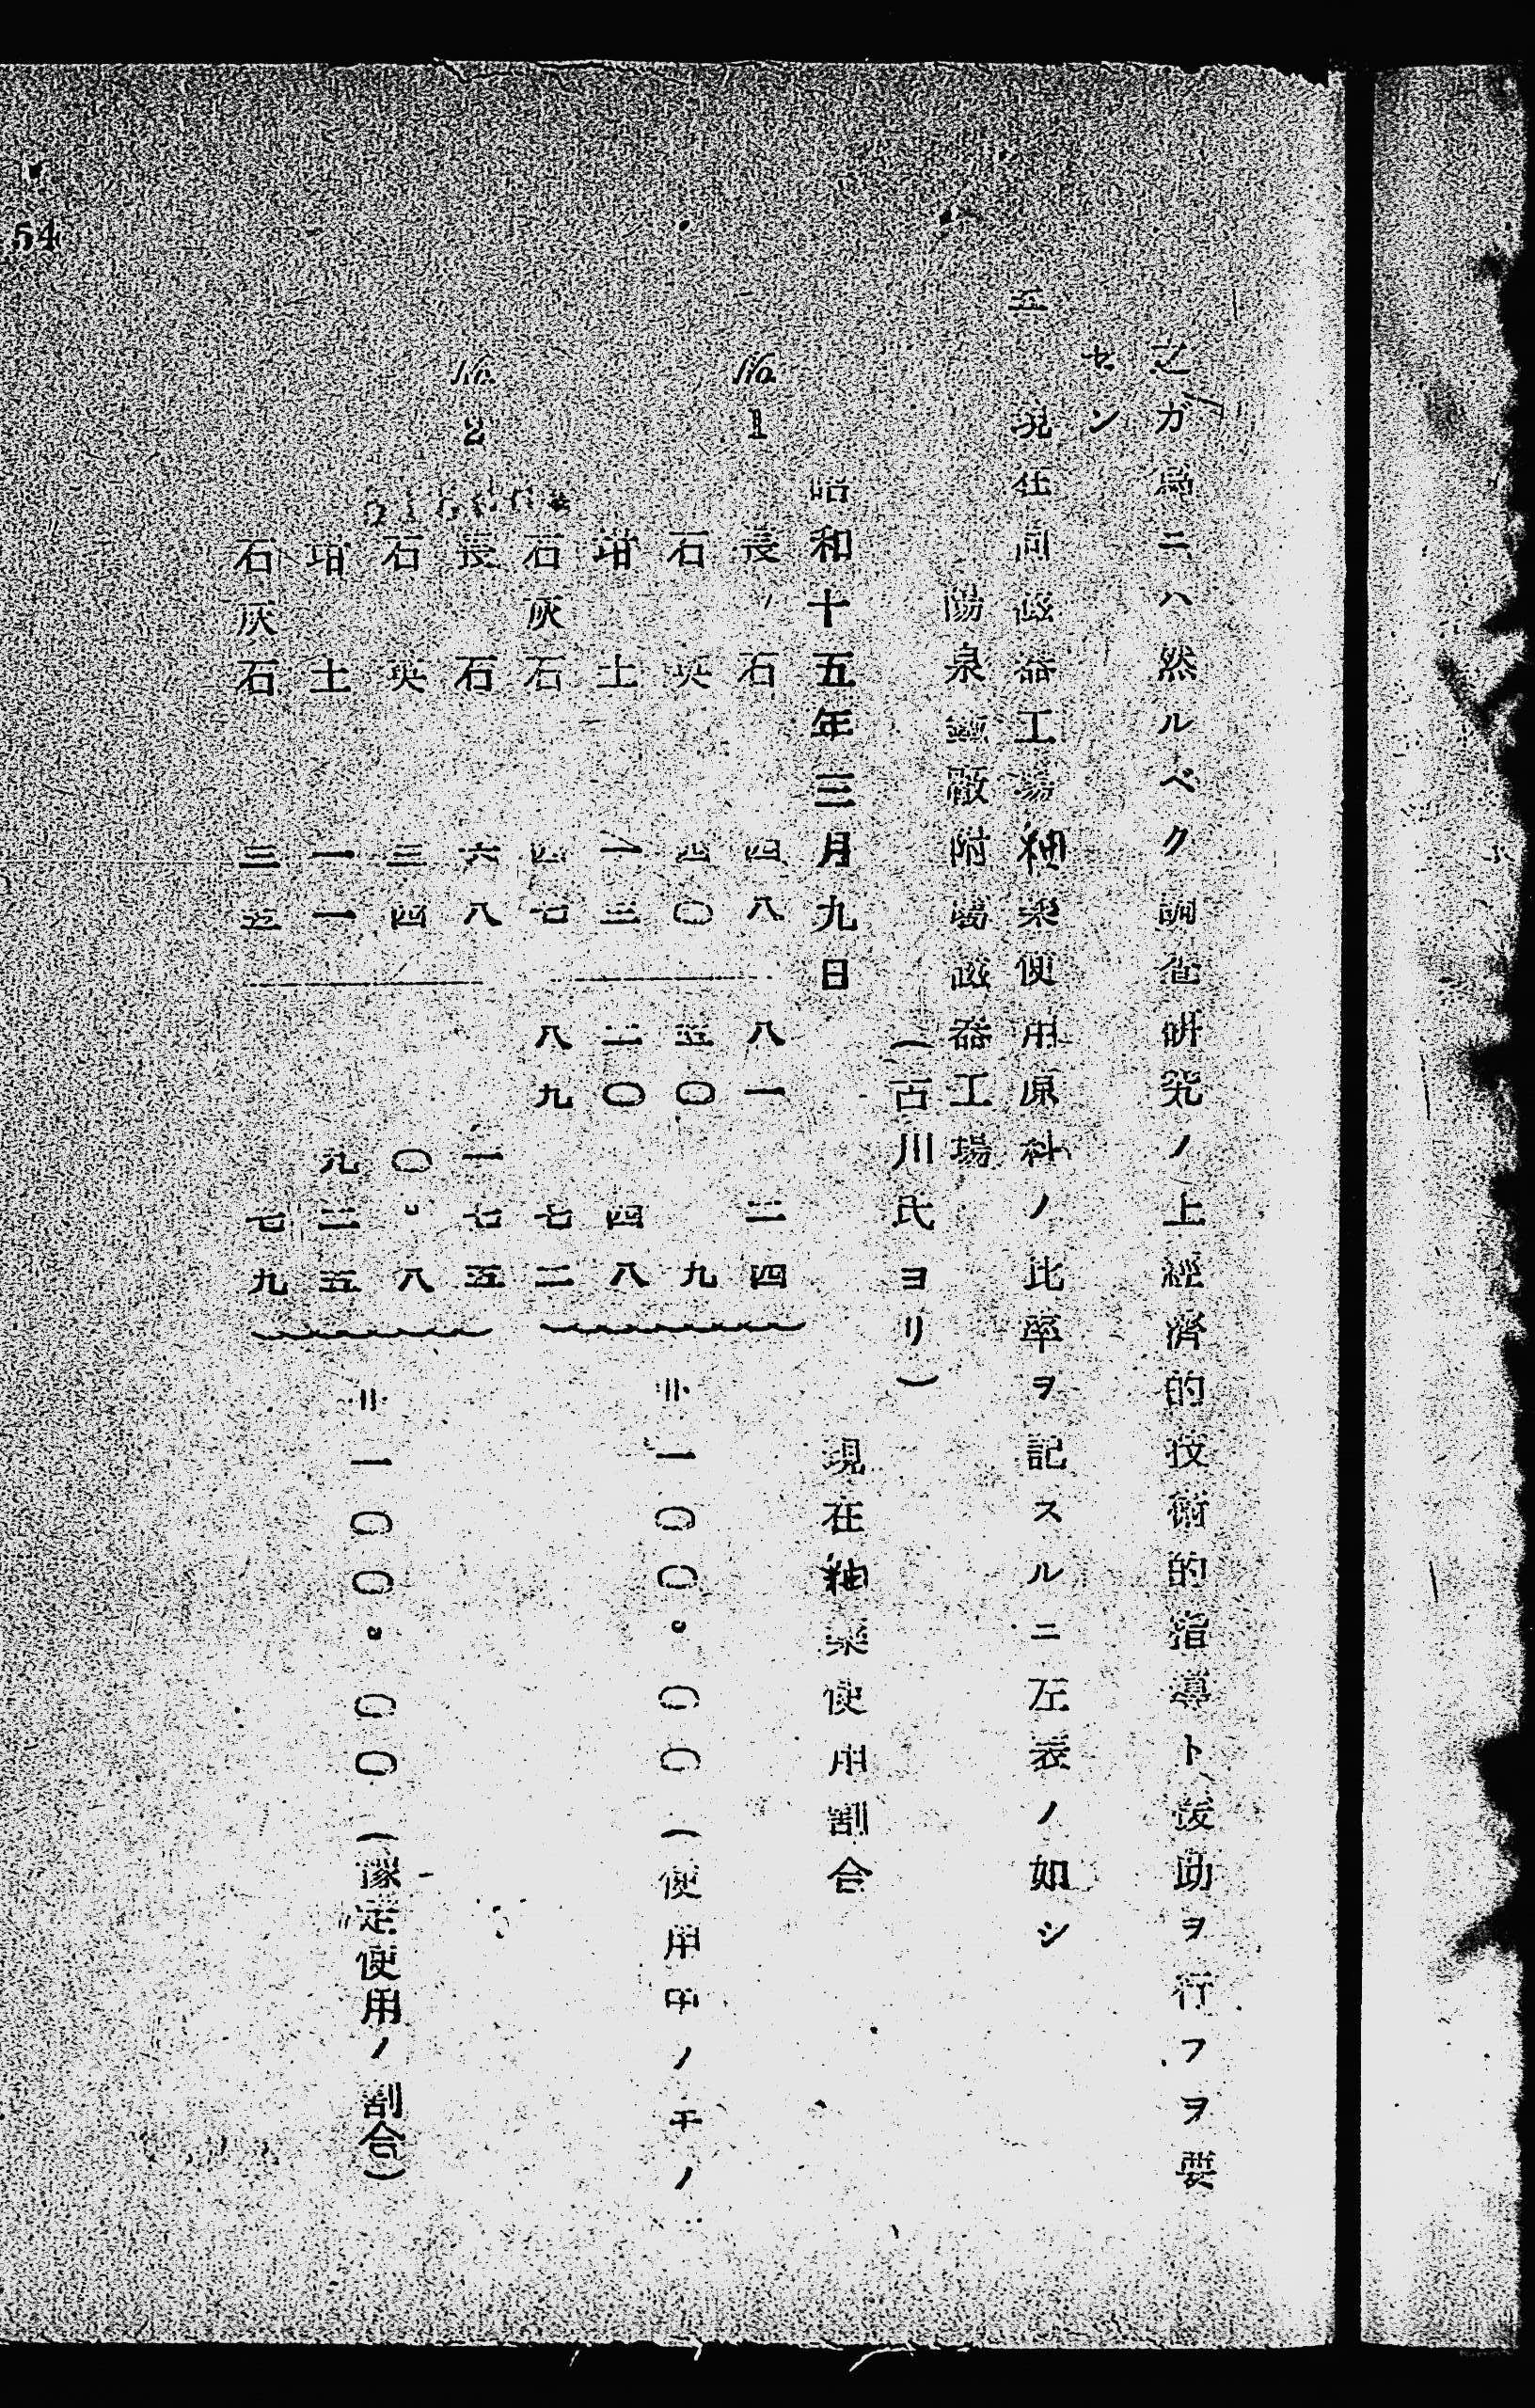 之カ為ニハ然ルベク調査研究ノ上經濟的技術的指導ト援助ヲ行フヲ要
セン
五 現在同磁器工場釉藥使用原料ノ比率ヲ記スルニ左表ノ如シ
陽泉 附屬磁器工場
(古川氏ヨリ)
昭和十五年三月九日 現在釉藥使用割合
№1 長石 四八 八一 二四
石英 四〇 五〇 九
坩土 一三 二〇 四八
石灰石 四七 八九 七二
=一〇〇。〇〇(使用中ノモノ
№2 長石 六八 一七五
石英 三四 〇。八
坩土 一一 九二五
石灰石 三五 七九
=一〇〇。〇〇(豫定使用ノ割合)
54